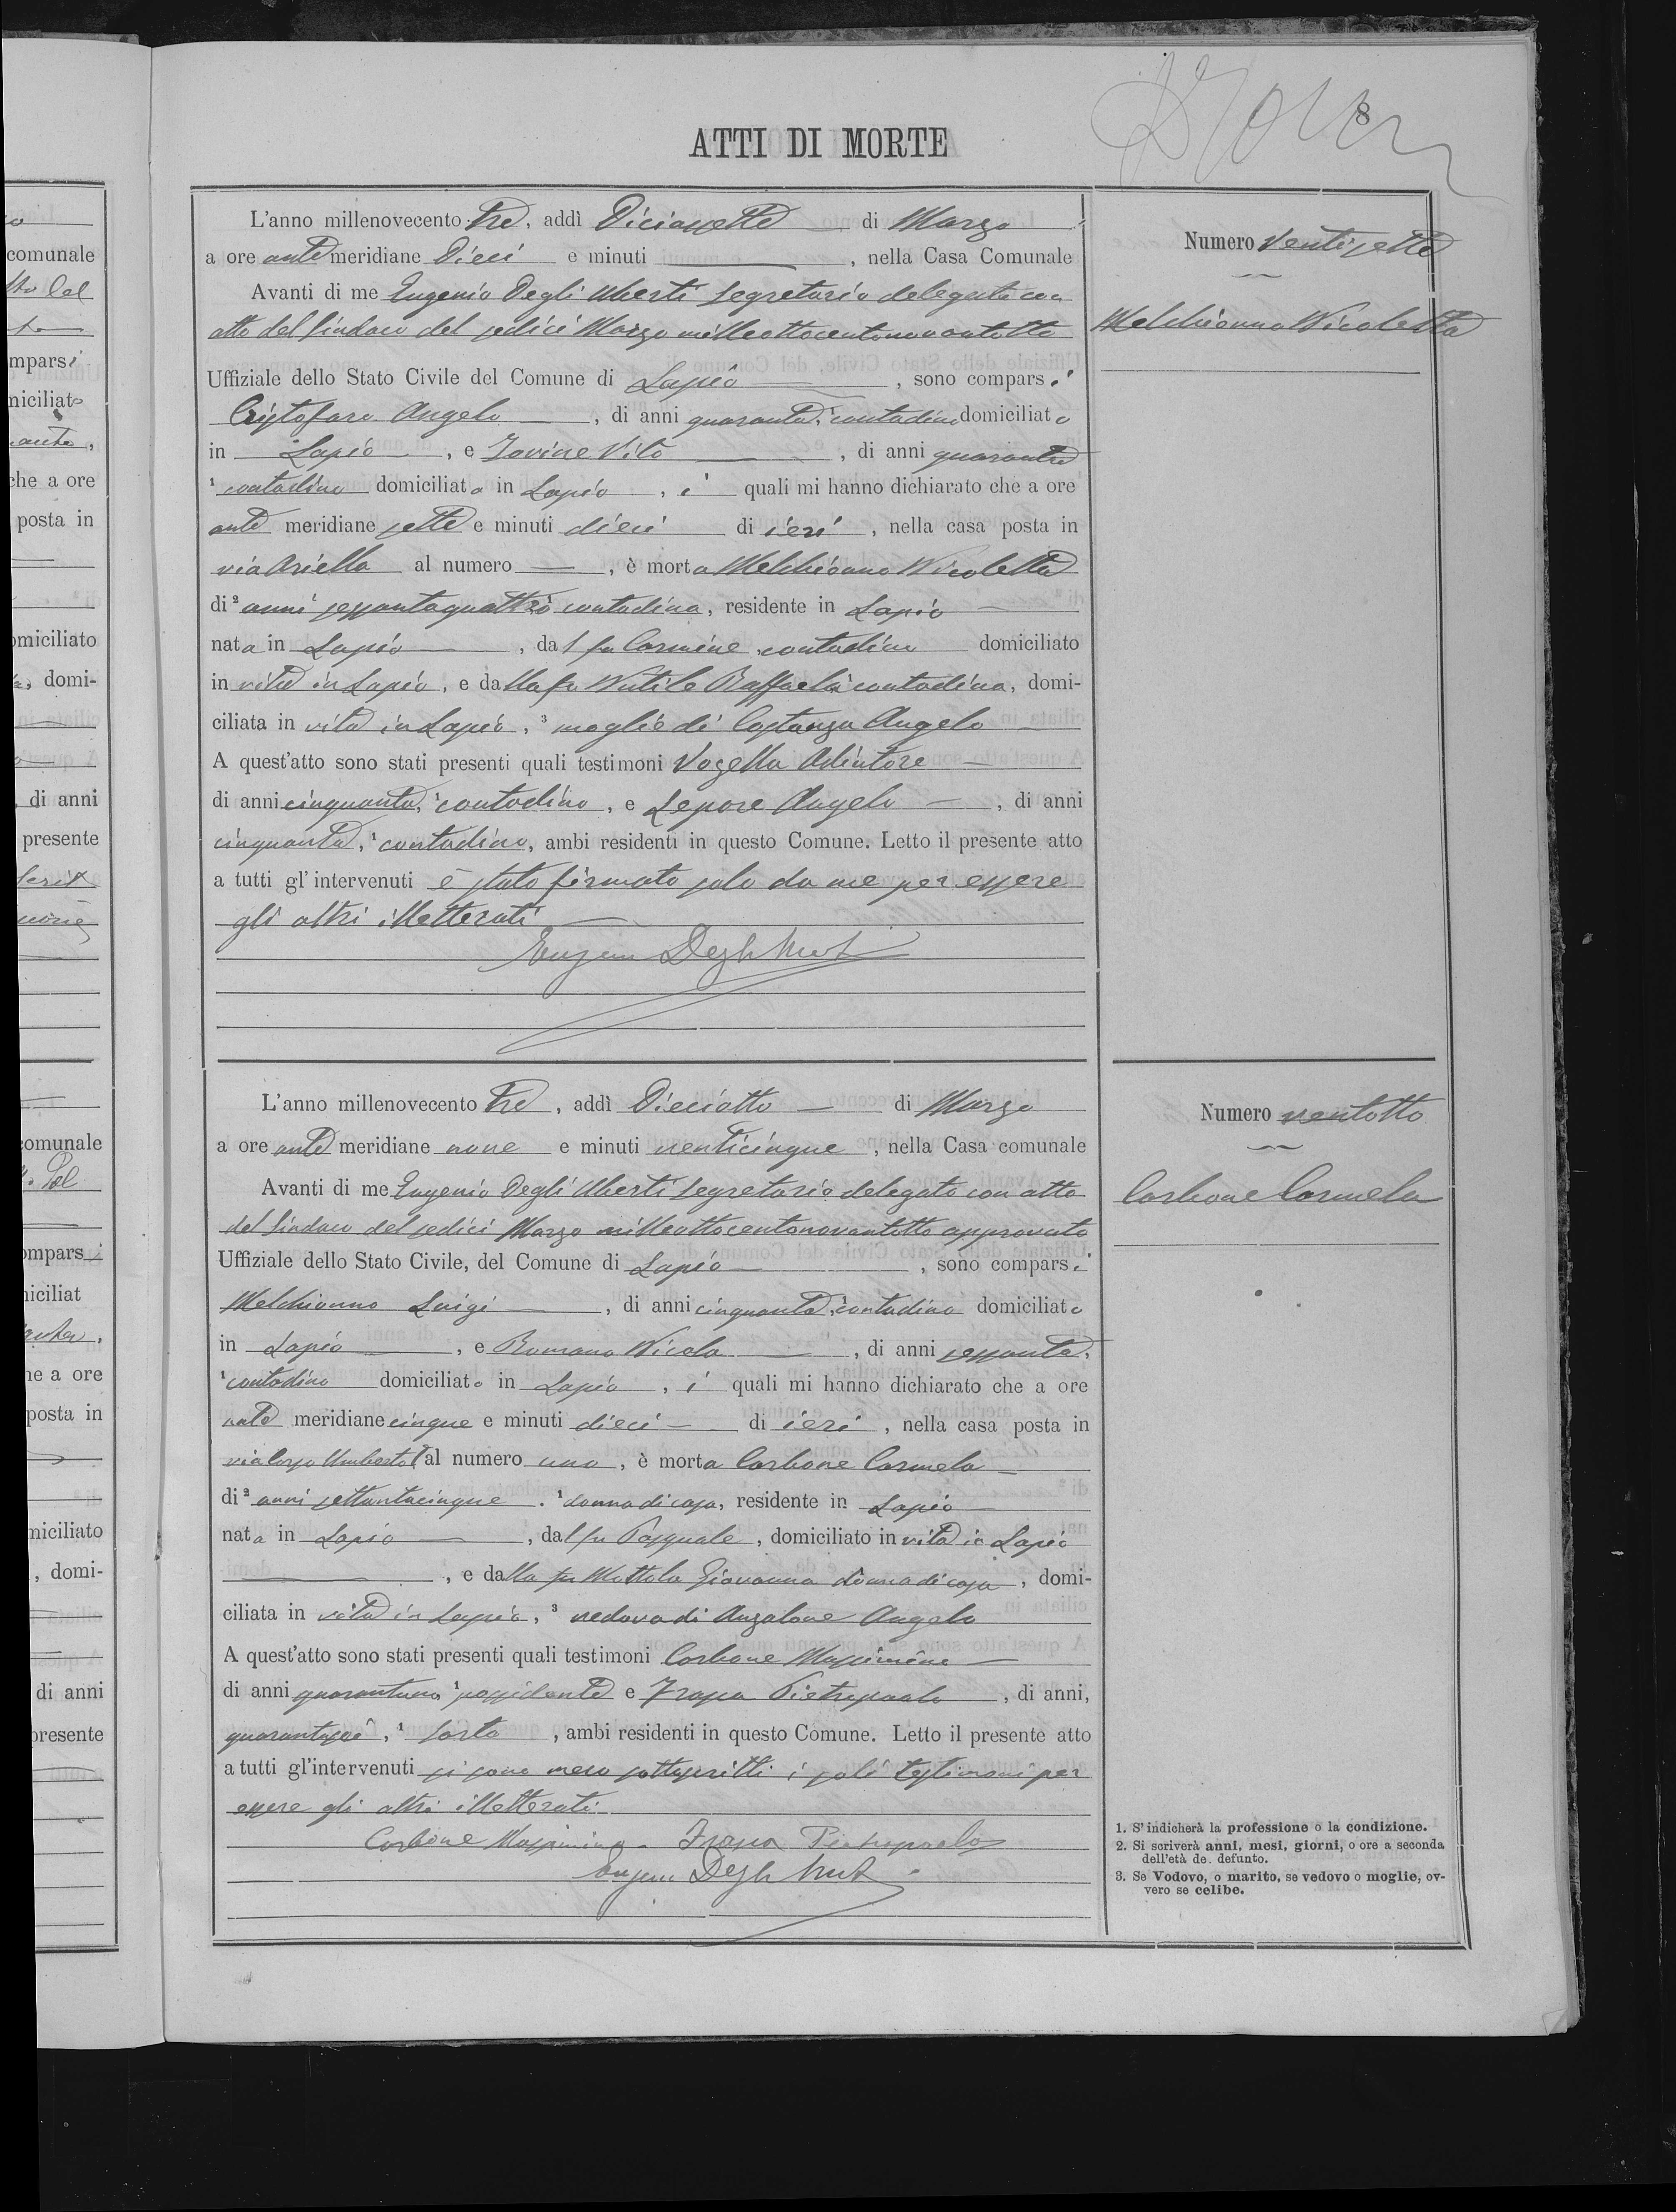 8
ATTI DI MORTE
L'anno millenovecento tre, addì Diciassette di Marzo
a ore ante meridiane Dieci e minuti , nella Casa Comunale
Avanti di me Eugenio Degli Uberti Segretario delegato con
atto del Sindaco del sedici Marzo milleottocentonovantotto
Uffiziale dello Stato Civile del Comune di Lapio , sono comparsi
Cristofaro Angelo , di anni quaranta, ¹ contadino domiciliato
in Lapio , e Iovine Vito , di anni quarantre
¹ contadino domiciliato in Lapio , i quali mi hanno dichiarato che a ore
ante meridiane sette e minuti dieci di ieri , nella casa posta in
via Ariella al numero — , è morta Melchionna Nicoletta
di ² anni sessantaquattro contadina, residente in Lapio
nata in Lapio , dal fu Carmine, contadino domiciliato
in vita in Lapio , e dalla fu Nutile Raffaela contadina, domi-
ciliata in vita in Lapio , ³ moglie di Costanza Angelo
A quest'atto sono stati presenti quali testimoni Vozella Adiutore
di anni cinquanta, ¹ contadino, e Lepore Angelo , di anni
cinquanta, ¹ contadino, ambi residenti in questo Comune. Letto il presente atto
a tutti gl'intervenuti è stato firmato solo da me per essere
gli altri illetterati
Eugenio Degli Uberti
Numero Ventisette
Melchionna Nicoletta
L'anno millenovecento tre , addì Dieciotto di Marzo
a ore ante meridiane nove e minuti venticinque , nella Casa comunale
Avanti di me Eugenio Degli Uberti Segretario delegato con atto
del Sindaco del sedici Marzo milleottocentonovantotto approvato
Uffiziale dello Stato Civile, del Comune di Lapio , sono comparsi
Melchionno Luigi , di anni cinquanta, ¹ contadino domiciliato
in Lapio , e Romano Nicola , di anni sessanta,
¹ contadino domiciliato in Lapio , i quali mi hanno dichiarato che a ore
ante meridiane cinque e minuti dieci di ieri , nella casa posta in
via Corso Umberto I al numero uno , è morta Carbone Carmela
di ² anni settantacinque . ¹ donna di casa, residente in Lapio
nata in Lapio , dal fu Pasquale , domiciliato in vita in Lapio
, e dalla fu Mottola Giovanna donna di casa , domi-
ciliata in vita in Lapio , ³ vedova di Anzalone Angelo
A quest'atto sono stati presenti quali testimoni Carbone Massimino
di anni quarantuno, ¹ possidente e Frasca Pietropaolo , di anni,
quarantasei , ¹ sarto , ambi residenti in questo Comune. Letto il presente atto
a tutti gl'intervenuti si sono meco sottoscritti i soli testimoni per
essere gli altri illetterati
Carbone Massimino Frasca Pietropaolo
Eugenio Degli Uberti
Numero ventotto
Carbone Carmela
1. S'indicherà la professione o la condizione.
2. Si scriverà anni, mesi, giorni, o ore a seconda
dell'età de. defunto.
3. Se Vodovo, o marito, se vedovo o moglie, ov-
vero se celibe.
comunale
mparsi
miciliato
che a ore
posta in
omiciliato
domi-
di anni
presente
comunale
ompars
iciliat
he a ore
posta in
miciliato
, domi-
di anni
presente